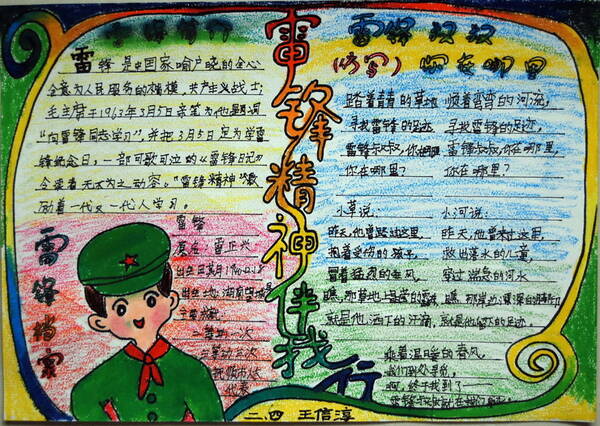 雷锋精神伴我行
雷锋简介
雷锋是中国家喻户晓的全心
全意为人民服务的楷模,共产主义战士;
毛主席于1963年3月5日亲笔为他题词
“向雷锋同志学习”,并把3月5日定为学雷
锋纪念日,一部可歌可泣的《雷锋日记》
令读者无不为之动容。“雷锋精神”激
励着一代又一代人学习。
雷锋档案
雷锋
原名:雷正兴
出生日期:1940.12.18
出生地:湖南望城
二等功一次
三等功二次
雷锋叔叔
(仿写)你在哪里
踏着青青的草地
寻找雷锋的足迹,
雷锋叔叔,你在哪里
你在哪里?
小草说:
昨天,他曾路过这里
抱着受伤的孩子,
冒着猛烈的狂风,
瞧,那草地上
就是他洒下的汗滴,
顺着弯弯的河流,
寻找雷锋的足迹,
雷锋叔叔,你在哪里,
你在哪里?
小河说:
昨天,他曾来过这里
救出落水的儿童,
穿过湍急的河水
瞧,那岸边
就是他留下的足迹,
乘着温暖的春风,
我们到处寻觅,
啊,终于找到了——
二.四 王信淳